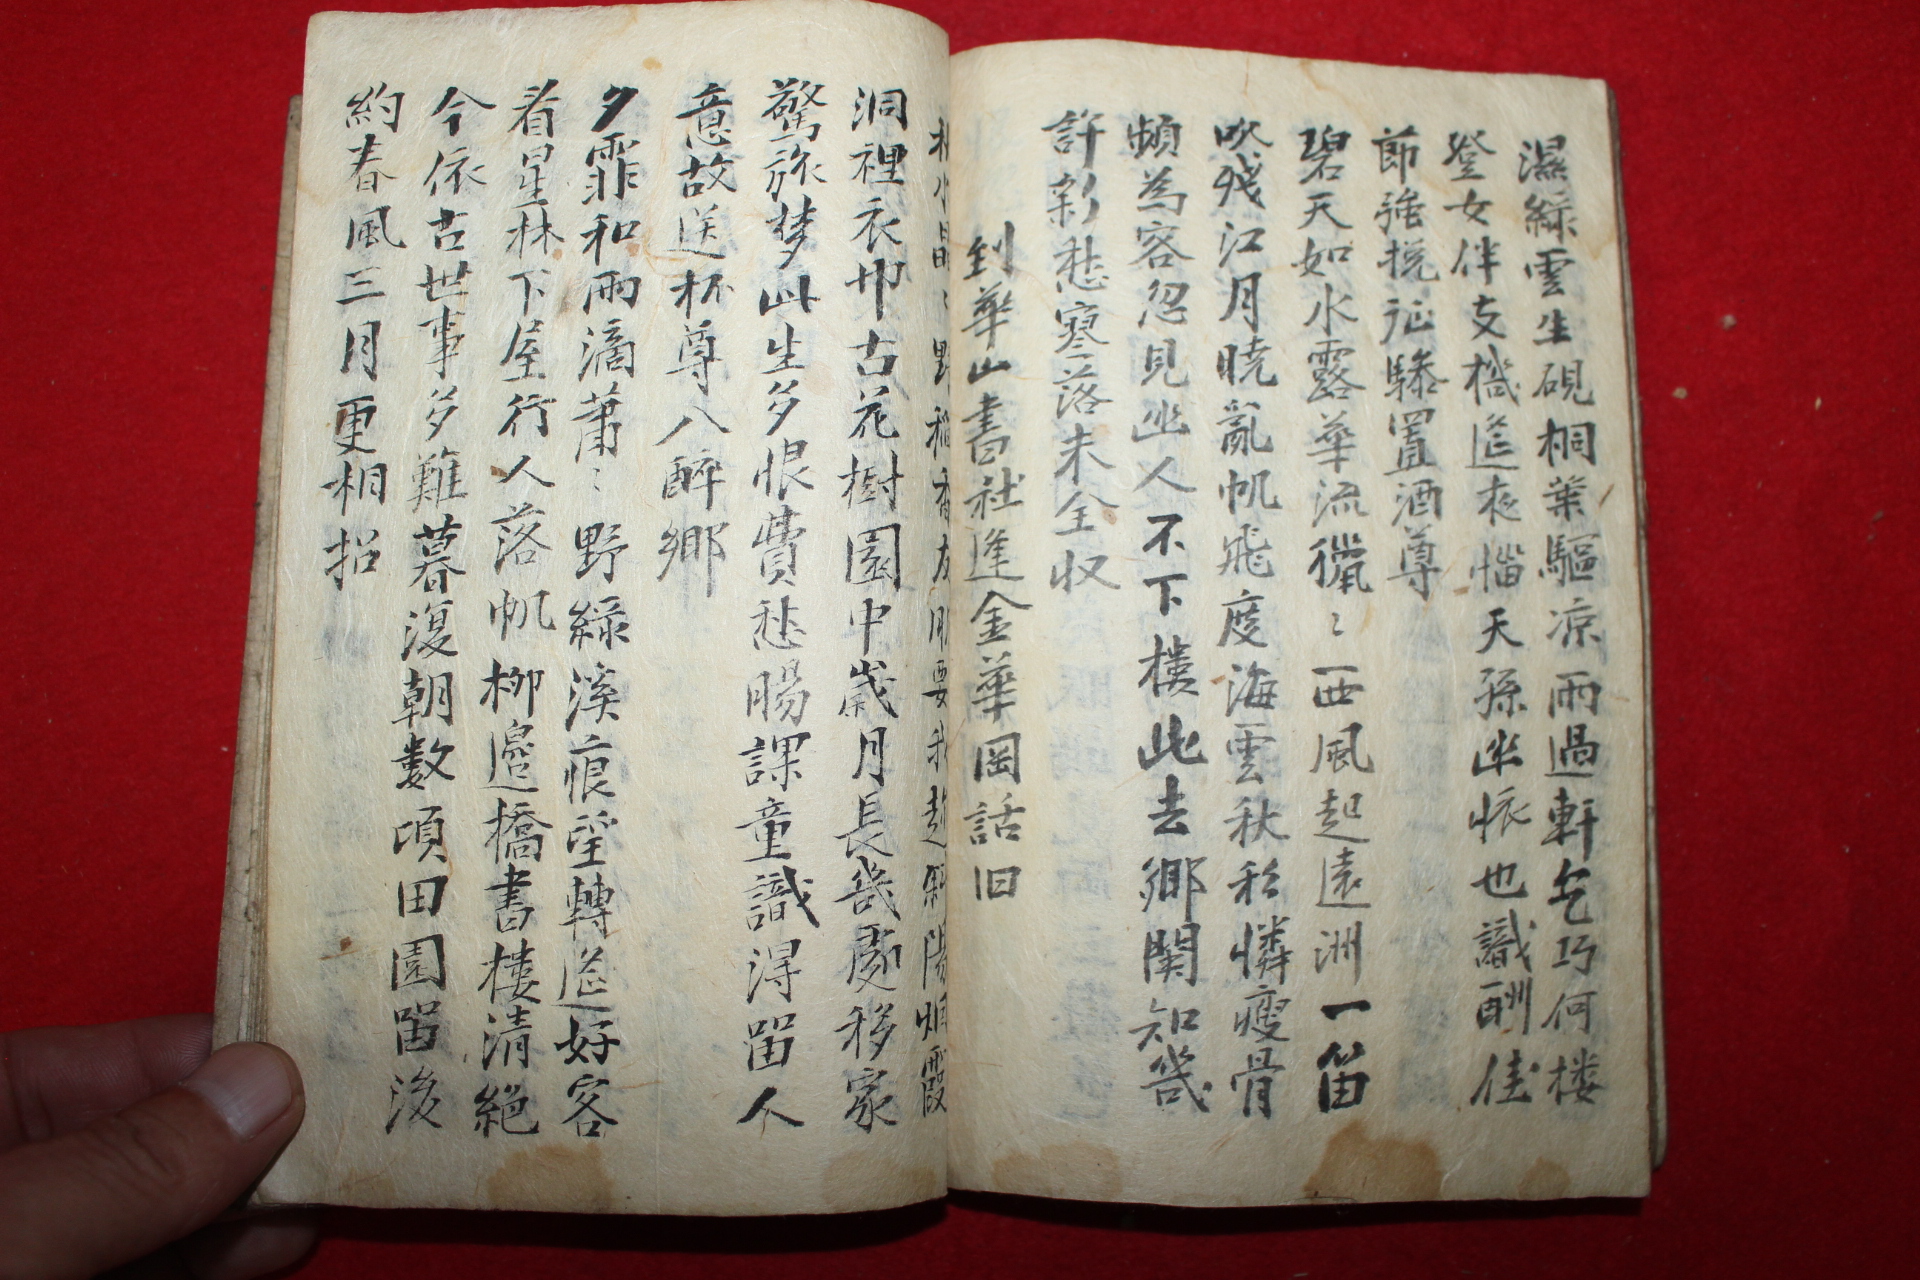 濕綠雲生硯桐葉驅凉雨過軒乞巧何楼
登女伴支機遥夜惱天孫幽悵也識酬佳
節強挽征驂置酒尊
碧天如水露華流獵〻西風起遠洲一笛
吹殘江月曉亂帆飛度海雲秋秖憐瘦骨
頻為客忽見幽人不下樓此去鄉関知幾
許新愁寥落未全収
到華山書社逢金華岡話旧
野稻香友朋要我趁斜陽烟霞
洞裡衣巾古花樹園中歲月長幾處移家
驚旅梦此生多恨費愁腸課童識得留人
意故送杯尊入醉鄉
夕霏和雨滴蕭〻野綠溪痕望轉遥好客
看星林下屋行人落帆柳邊橋書樓清絕
今依古世事多難暮復朝數頃田園留後
約春風三月更相招